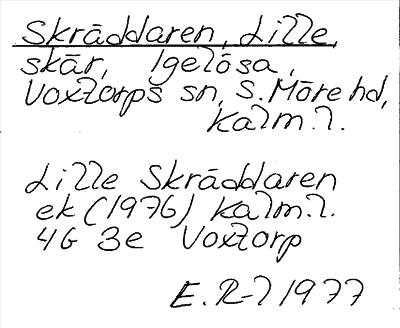 Skräddaren, Lille,
skär, Igelösa,
Voxtorps sn, S. Möre hd,
Kalm. l.
Lille Skräddaren
ek (1976) Kalm. l.
4G 3e Voxtorp
E. R-l 1977